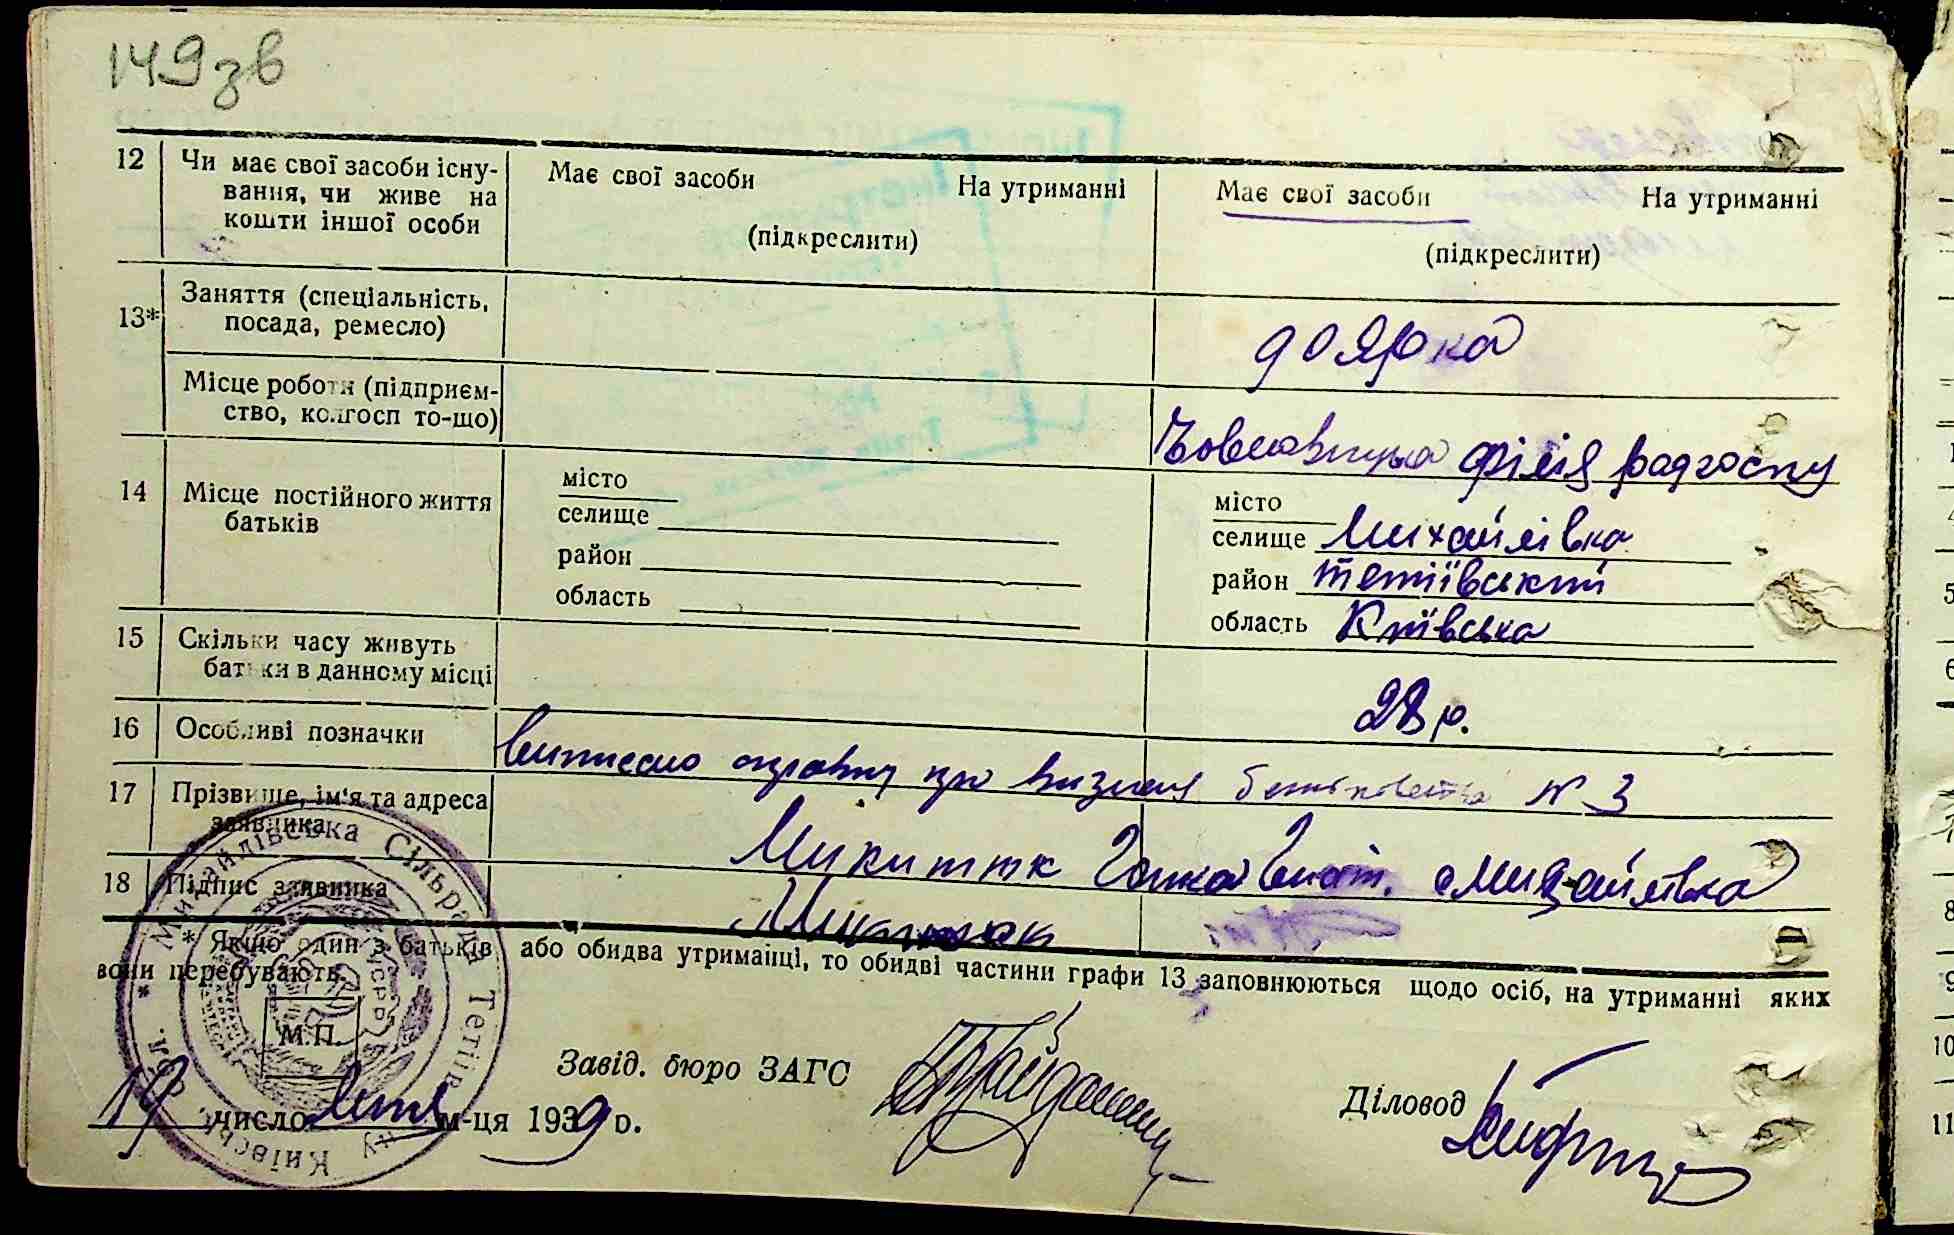 149зв
12 Чи має свої засоби існу-
вання, чи живе на
кошти іншої особи
Має свої засоби На утриманні
(підкреслити)
Має свої засоби На утриманні
(підкреслити)
13* Заняття (спеціальність,
посада, ремесло)
доярка
Місце роботи (підприєм-
ство, колгосп то-що)
філія радгоспу
14 Місце постійного життя
батьків
місто
селище
район
область
місто
селище Михайлівка
район тетіївський
область Київська
15 Скільки часу живуть
батьки в данному місці
28 р.
16 Особливі позначки
виписано справку про визнання батьковства № 3
17 Прізвище, ім'я та адреса
заявника
Микитюк Ганка Гнат. с Михайлівка
18 Підпис заявника
Микитюк
* Якщо один з батьків або обидва утриманці, то обидві частини графи 13 заповнюються щодо осіб, на утриманні яких
вони перебувають.
Михайлівська Сільрада Тетіїв
Київськ
УСРР
М.П.
Завід. бюро ЗАГС
Діловод
19 число м-ця 1939 р.